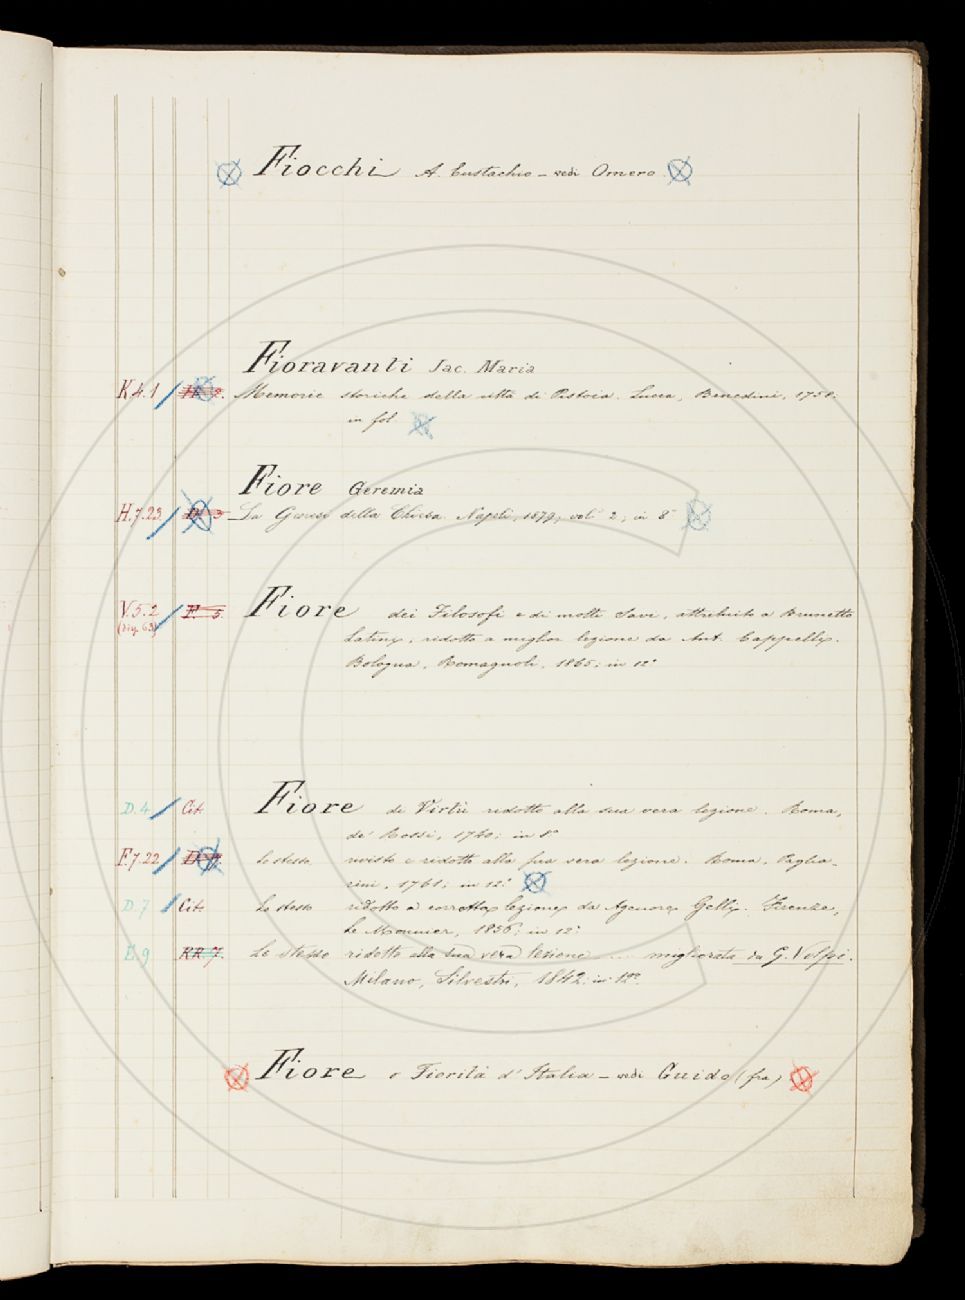 Fiocchi A. Eustachio - vedi Omero.
Fioravanti Jac. Maria
K.4.1 Memorie storiche della città di Pistoia. Lucca, Benedini, 1758;
in fol.
Fiore Geremia
H.7.23 La Genesi della Chiesa. Napoli, 1879, voli 2; in 8°
V.5.2 F. 5. Fiore dei Filosofi e di molti Savi, attribuito a Brunetto
(Leg. 63) Latini, ridotto a miglior lezione da Ant. Cappelli.
Bologna, Romagnoli, 1865; in 12°
D.4 Cit. Fiore di Virtù ridotto alla sua vera lezione. Roma,
de' Rossi, 1740; in 8°
F.7.22 Lo stesso rivisto e ridotto alla sua vera lezione. Roma, Paglia-
rini, 1761; in 12°
D.7 Cit. Lo stesso ridotto a corretta lezione da Agenore Gelli. Firenze,
Le Monnier, 1856; in 12°
E.9 RR.7. Lo stesso ridotto alla sua vera lezione .... migliorata da G. Volpi.
Milano, Silvestri, 1842. in 12°.
Fiore o Fiorità d'Italia - vedi Guido (fra)